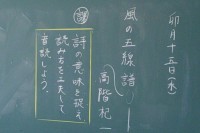 卯月十五日(水)
風の五線譜
高階杞一
課
詩の意味を捉え
読み方を工夫して
音読しよう。